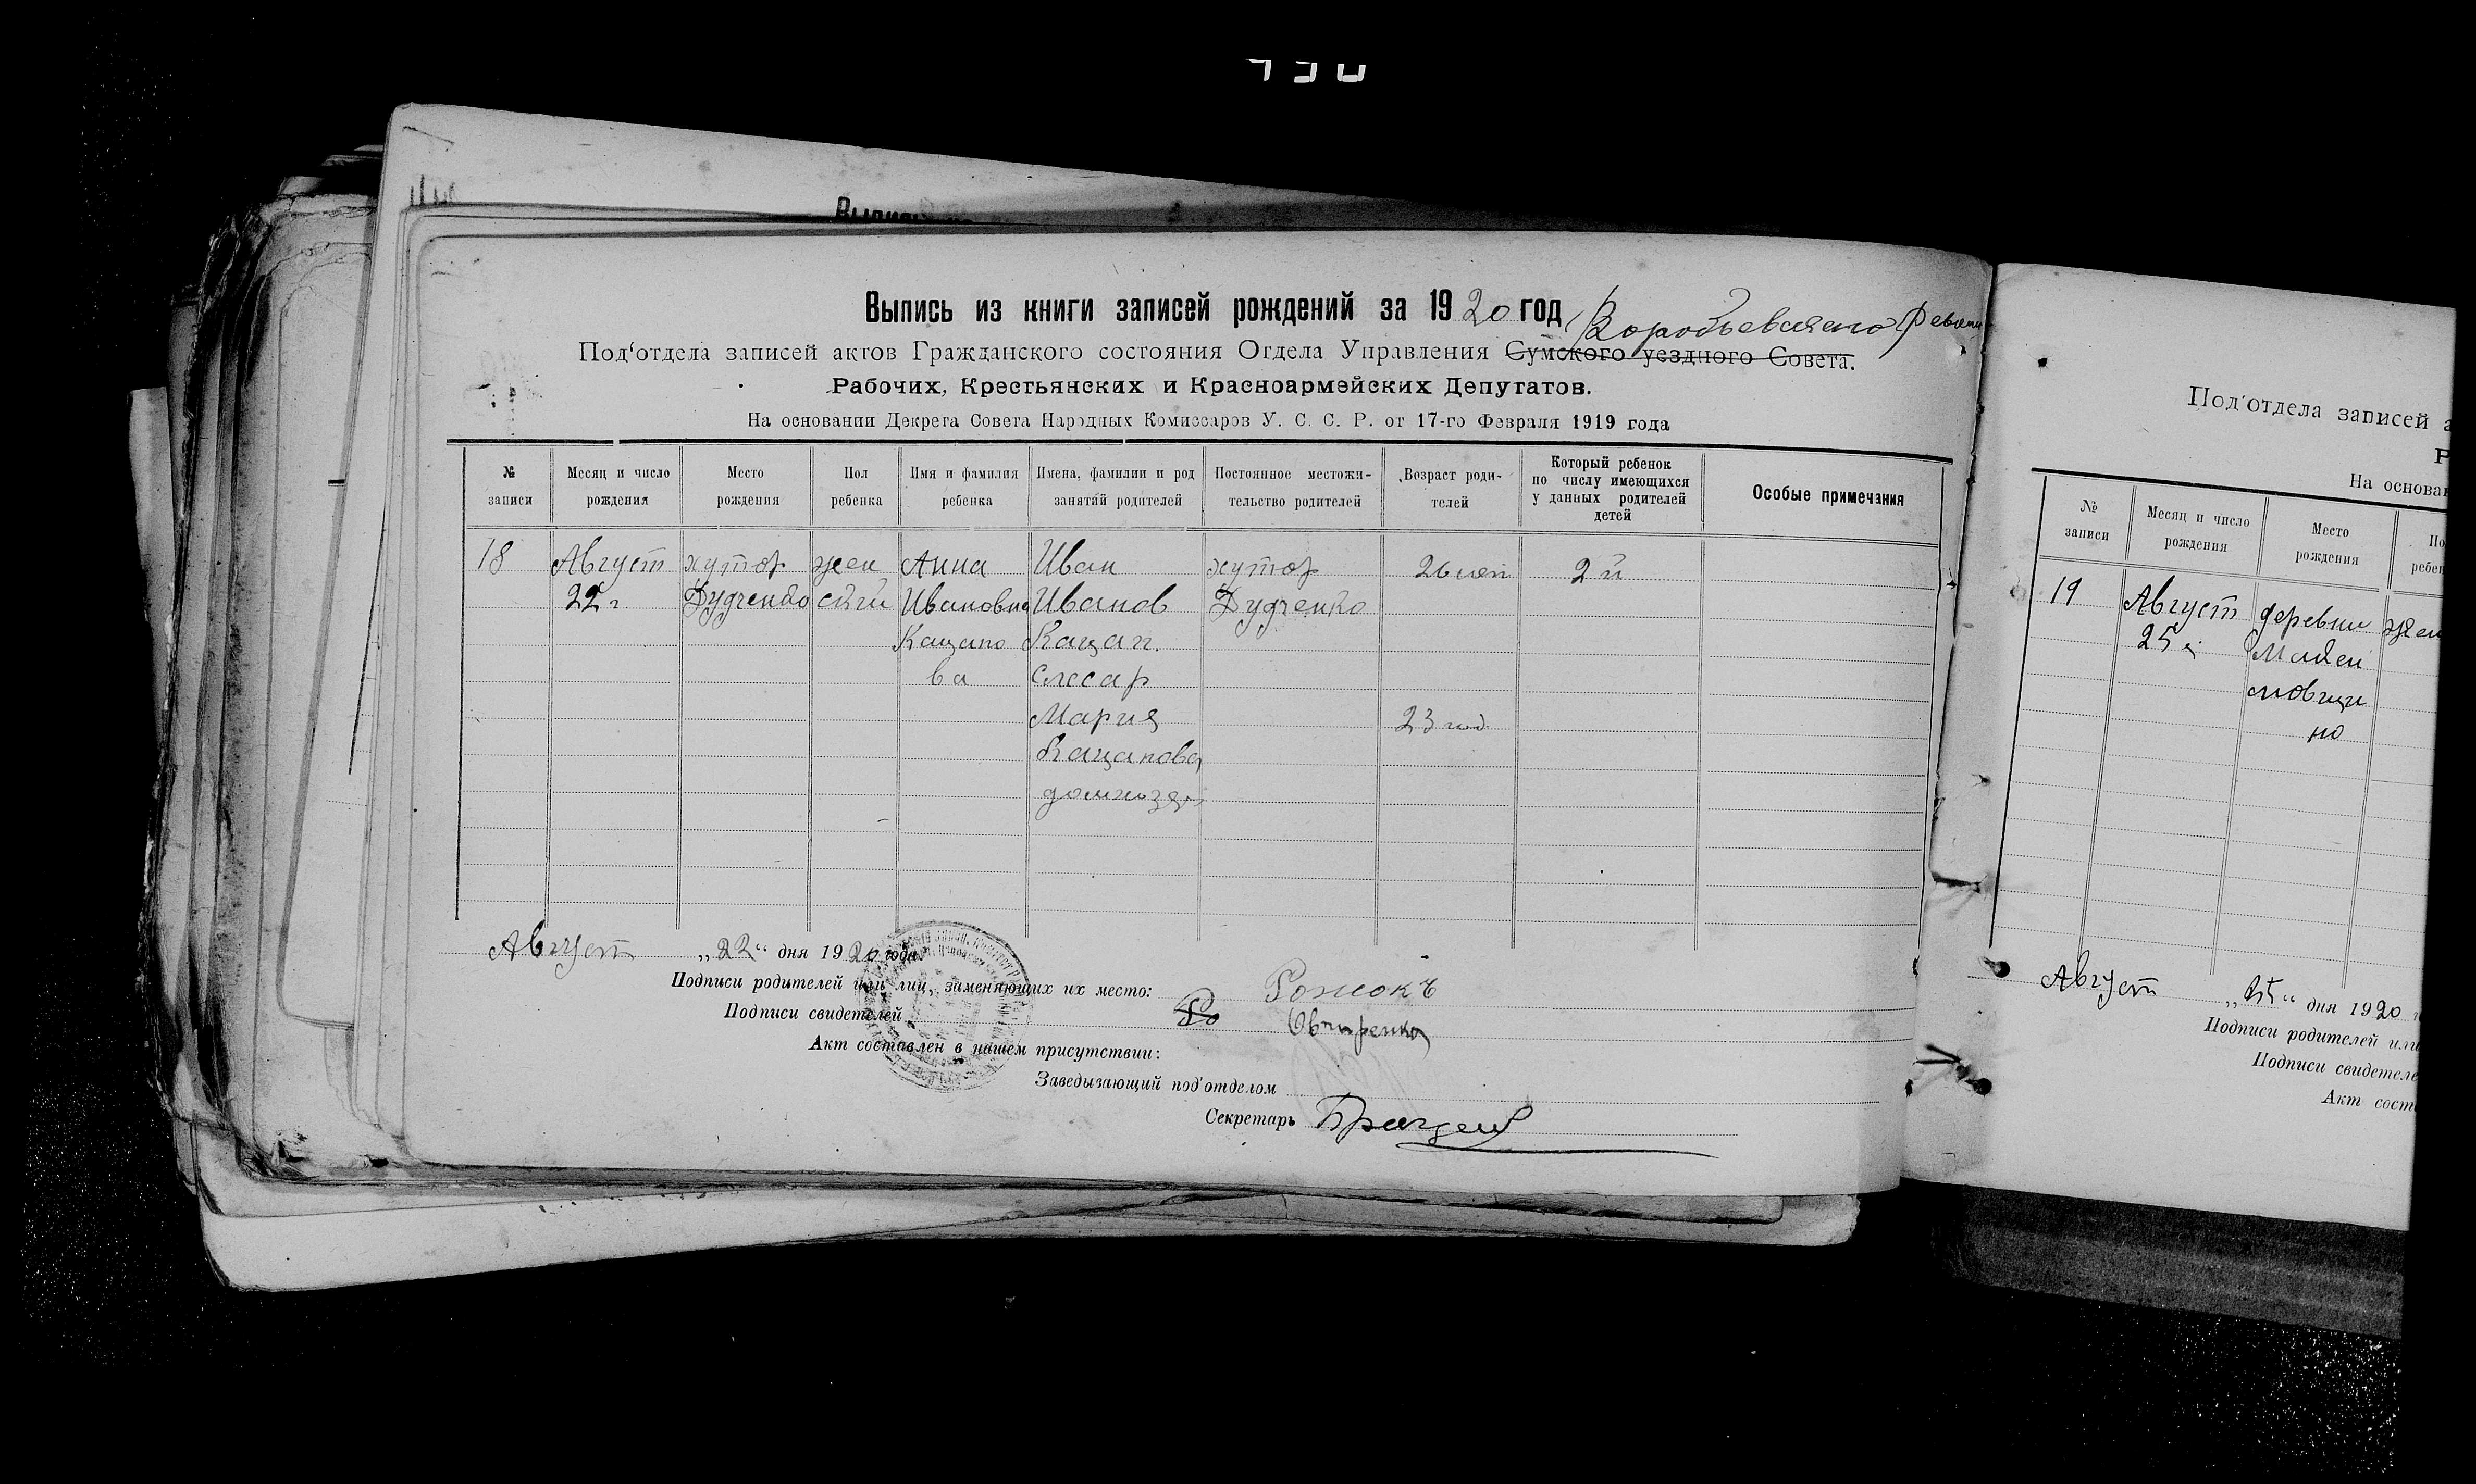 430
Выпись
Выпись из книги записей рождений за 1920 год
Под'отдела записей актов Гражданского состояния Отдела Управления Сумского уездного Совета.
Рабочих, Крестьянских и Красноармейских Депутатов.
На основании Декрета Совета Народных Комиссаров У. С. С. Р. от 17-го Февраля 1919 года
№ записи
Месяц и число рождения
Место рождения
Пол ребенка
Имя и фамилия ребенка
Имена, фамилии и род занятий родителей
Постоянное местожи-тельство родителей
Возраст роди-телей
Который ребенок по числу имеющихся у данных родителей детей
Особые примечания
18 Август хутор жен Анна Иван хутор 26 лет 2й
22 Дудченко ский Ивановна Иванов Дудченко
Кацапо Кацап.
ва Слесар
Мария 23 год
Кацапова
Август „22“ дня 1920 года
Подписи родителей или лиц, заменяющих их место: Рожокъ
Подписи свидетелей
Акт составлен в нашем присутствии:
Заведывающий под'отделом
Секретарь
Под'отдела записей
На основан
№ записи
Месяц и число рождения
Место рождения
19 Август деревни жен
25
Август „25“ дня 1920
Подписи родителей или
Подписи свидетеле
Акт сост